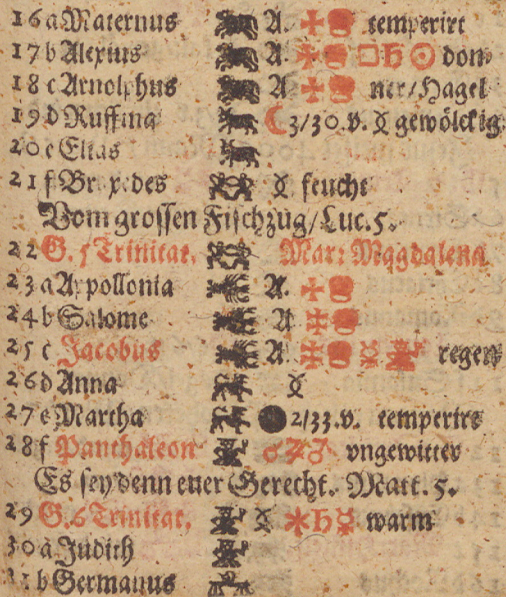 16 a Maternus A. temperirt
17 b Alexius A. □ ♄ ☉ don-
18 c Arnolphus A ner/Hagel
19 d Ruffina ☾ 3/30.v. ☿ gewölckig
20 e Elias
21 f Braxedes ☿ feucht
Vom grossen Fischzug/Luc. 5.
22 G. 5 Trinitat. Mar: Magdalena
23 a Appollonia A.
24 b Salome A
25 c Jacobus A. ☿ regen
26 d Anna ☿
27 e Martha ● 2/33.v. tempertrt
28 f Panthaleon ♂ ♂ vngewitter
Es sey denn euer Gerecht. Matt. 5.
29 G. 6 Trinitat. ☿ ⚹ ♄ ☿ warm
30 a Judith
31 b Germanus